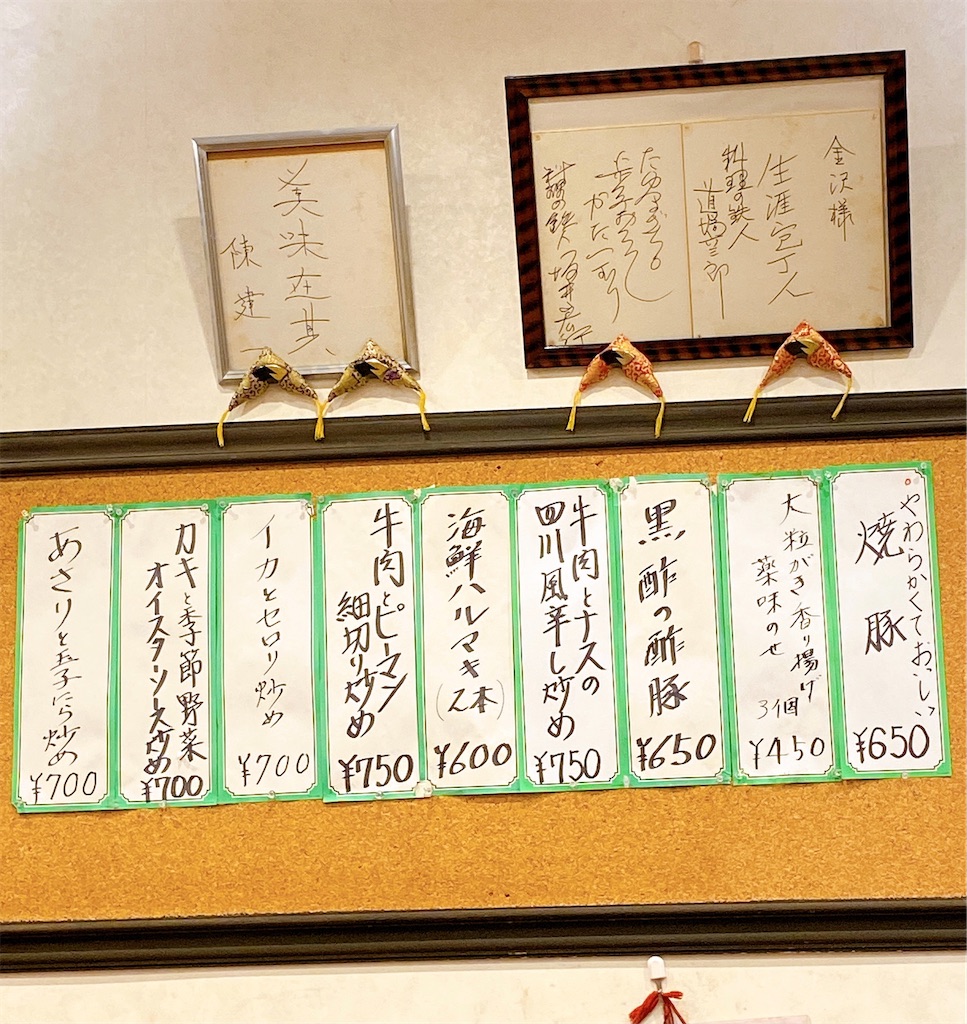 金沢様
生涯包丁人
料理の鉄人
道場六三郎
たゆまざる
歩みおそろし
かたつむり
料理の鉄人 坂井宏行
美味在其
陳建一
やわらかくておいしい
焼豚
¥650
大粒がき香り揚げ
薬味のせ 3個
¥450
黒酢の酢豚
¥650
牛肉とナスの
四川風辛し炒め
¥750
海鮮ハルマキ
(2本)
¥600
牛肉とピーマン
細切り炒め
¥750
イカとセロリ炒め
¥700
カキと季節野菜
オイスターソース炒め
¥700
あさりと玉子にら炒め
¥700